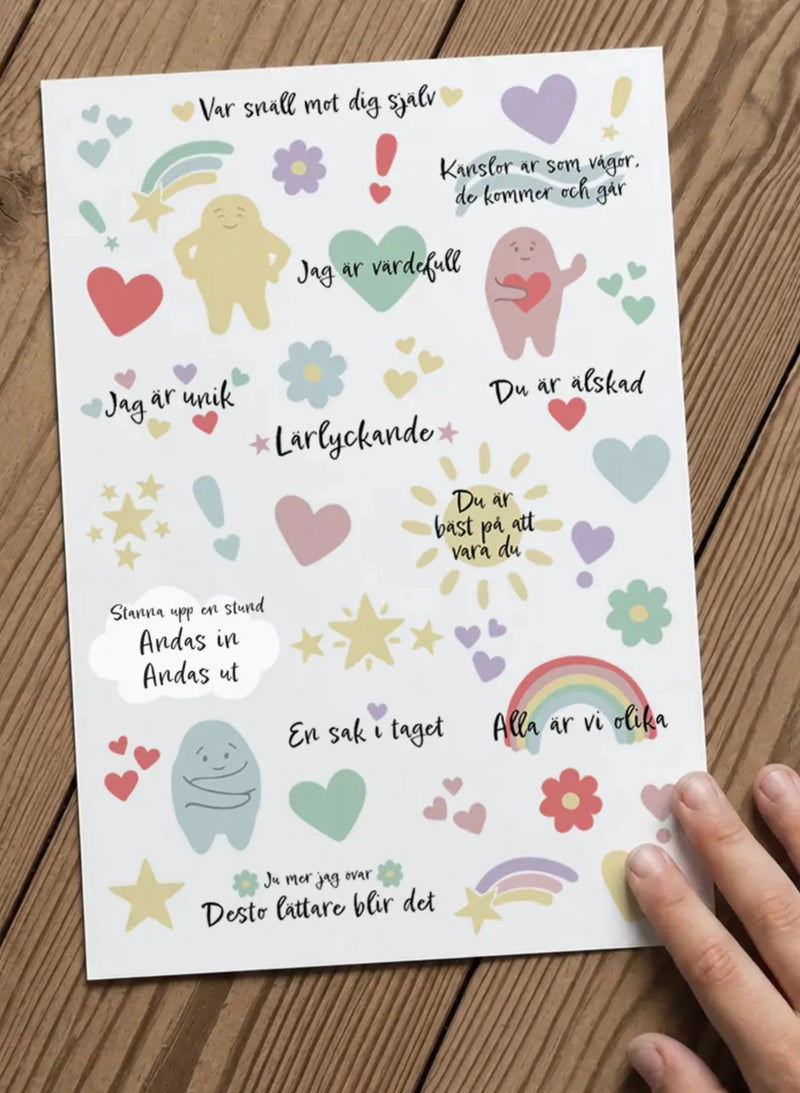 Var snäll mot dig själv
Känslor är som vågor,
de kommer och går
Jag är värdefull
Jag är unik
Du är älskad
Lärlyckande
Du är
bäst på att
vara du
Stanna upp en stund
Andas in
Andas ut
En sak i taget
Alla är vi olika
Ju mer jag övar
Desto lättare blir det